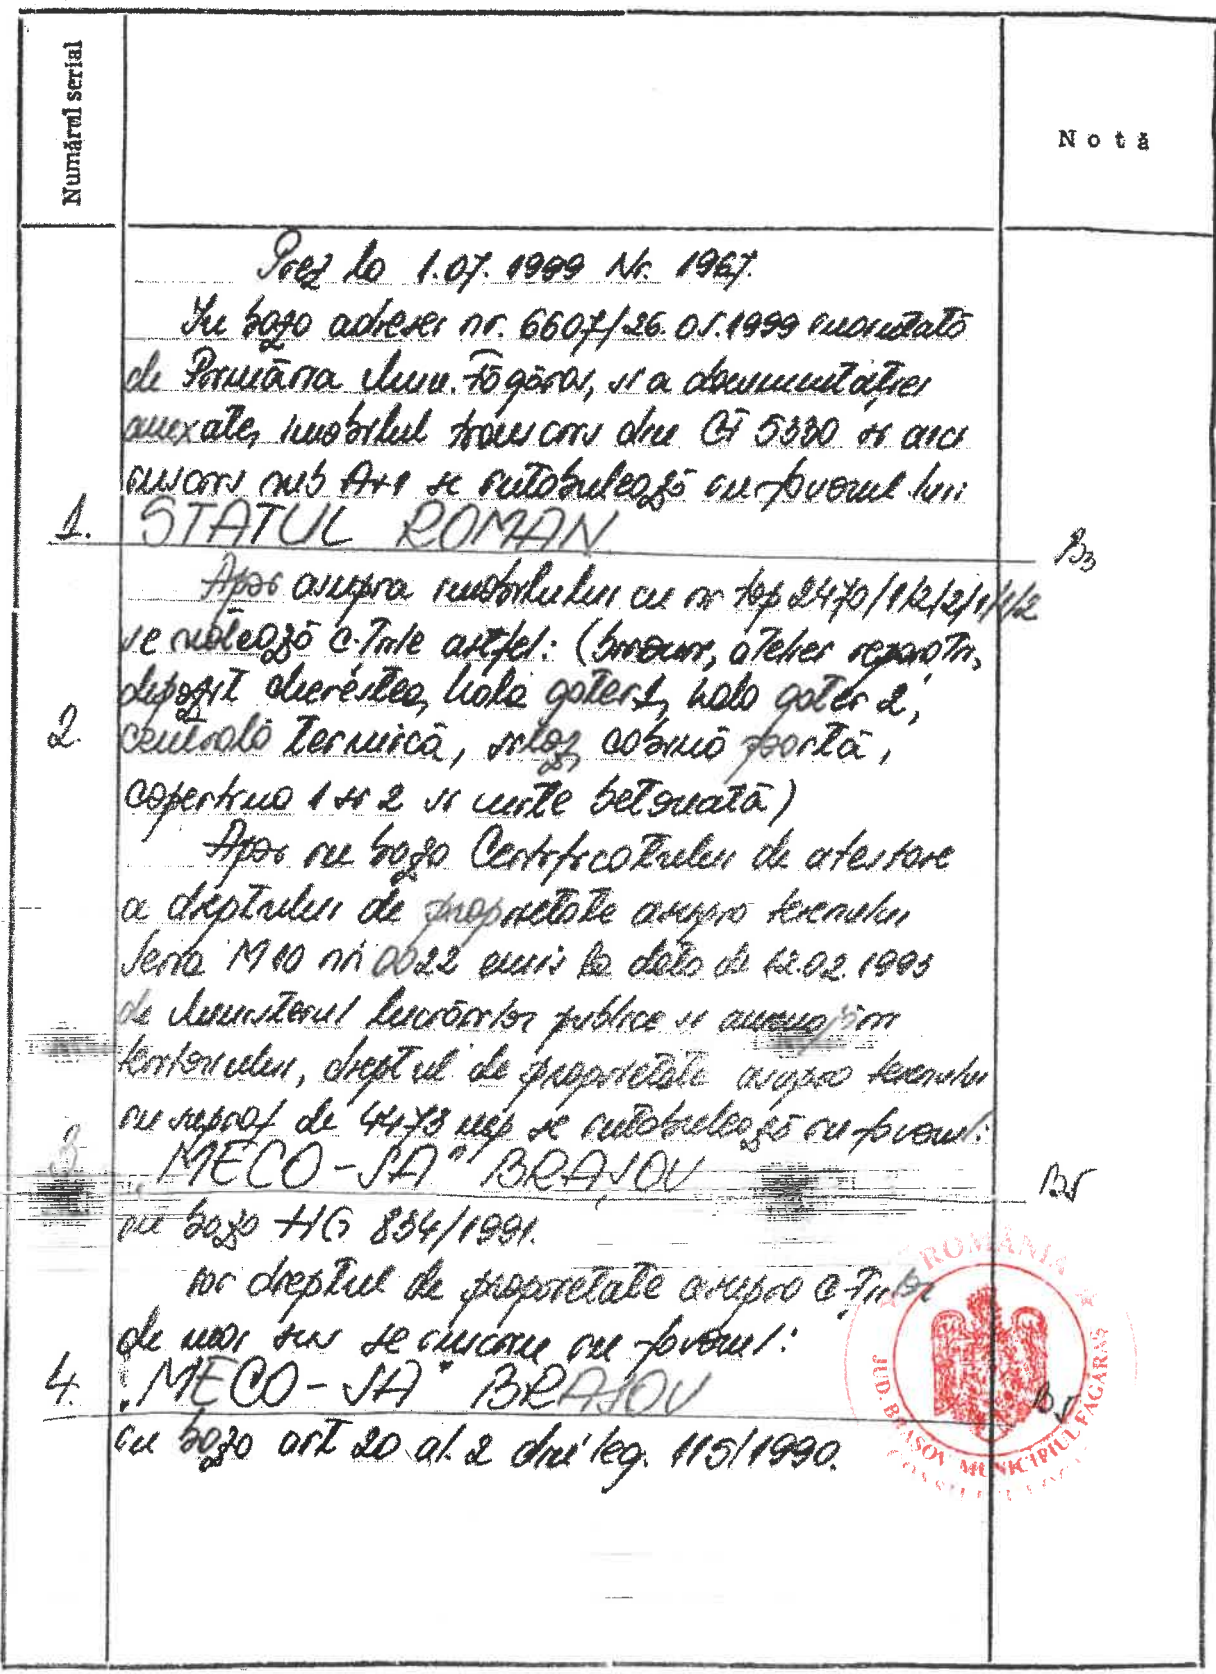 Numărul serial
Notă
Prez la 1.07.1999 Nr. 1967.
In baza adresei nr. 6607/26.05.1999 înaintată
de Primăria Mun. Făgăraș, și a documentației
anexate, imobilul transcris din CF 5330 și aici
înscris sub A+1 se intabulează în favoarea lui:
1. STATUL ROMAN B3
Apoi asupra imobilului cu nr top 2470/1/2/2/1/1/2
se notează c-țiile astfel: (birouri, atelier reparații,
depozit cherestea, hala gater 1, hala gater 2,
2. centrală termică, siloz, cabină poartă,
copertina 1 și 2 și incinte betonată)
Apoi în baza Certificatului de atestare
a dreptului de proprietate asupra terenului
Seria M10 nr. 0022 emis la data de 12.02.1993
de Ministerul lucrărilor publice și amenajării
teritoriului, dreptul de proprietate asupra terenului
în supraf de 4473 mp se intabulează în favoarea:
3. „MECO-SA" BRAȘOV B5
în baza HG 834/1991.
iar dreptul de proprietate asupra c-țiilor
de mai sus se înscrie în favoarea:
4. „MECO-SA" BRAȘOV B5
în baza art 20 al. 2 din leg. 115/1990.
ROMÂNIA
JUD. BRAȘOV MUNICIPIUL FĂGĂRAȘ
CONSILIUL LOCAL